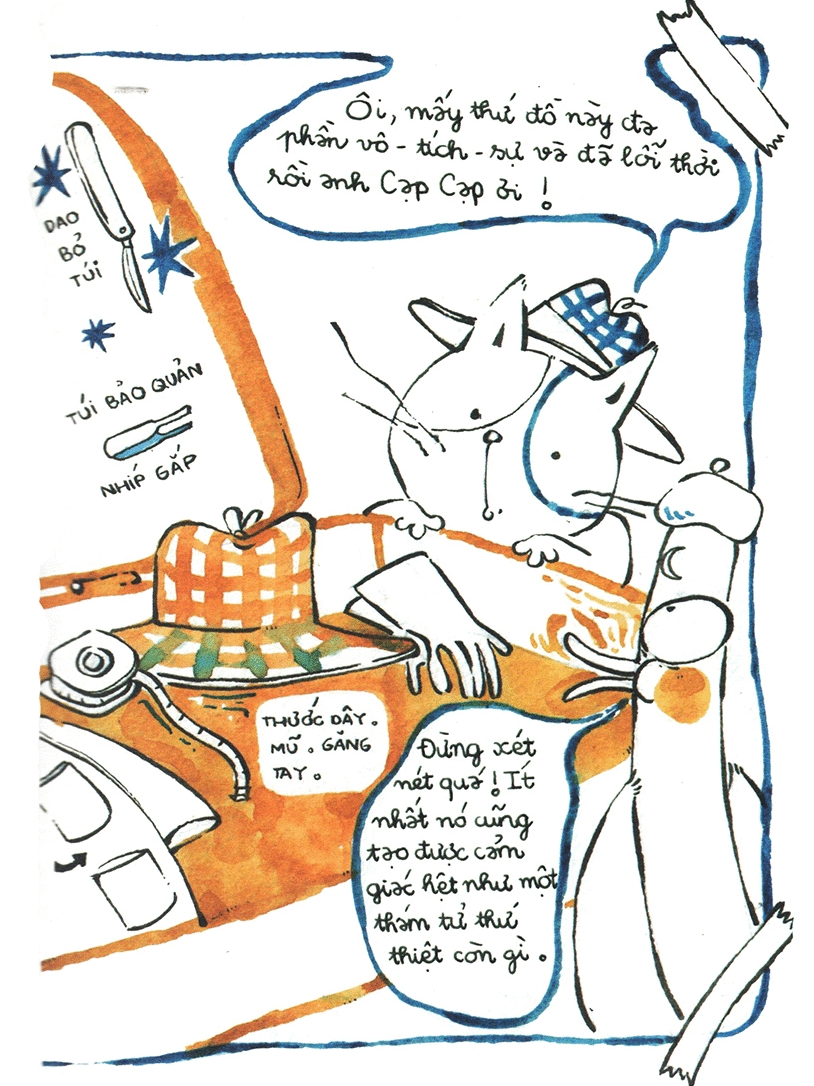 Ôi, mấy thứ đồ này đa
phần vô - tích - sự và đã lỗi thời
rồi anh Cạp Cạp ơi !
DAO
BỎ
TÚI
TÚI BẢO QUẢN
NHÍP GẮP
THƯỚC DÂY.
MŨ. GĂNG
TAY.
Đừng xét
nét quá! Ít
nhất nó cũng
tạo được cảm
giác hệt như một
thám tử thứ
thiệt còn gì.